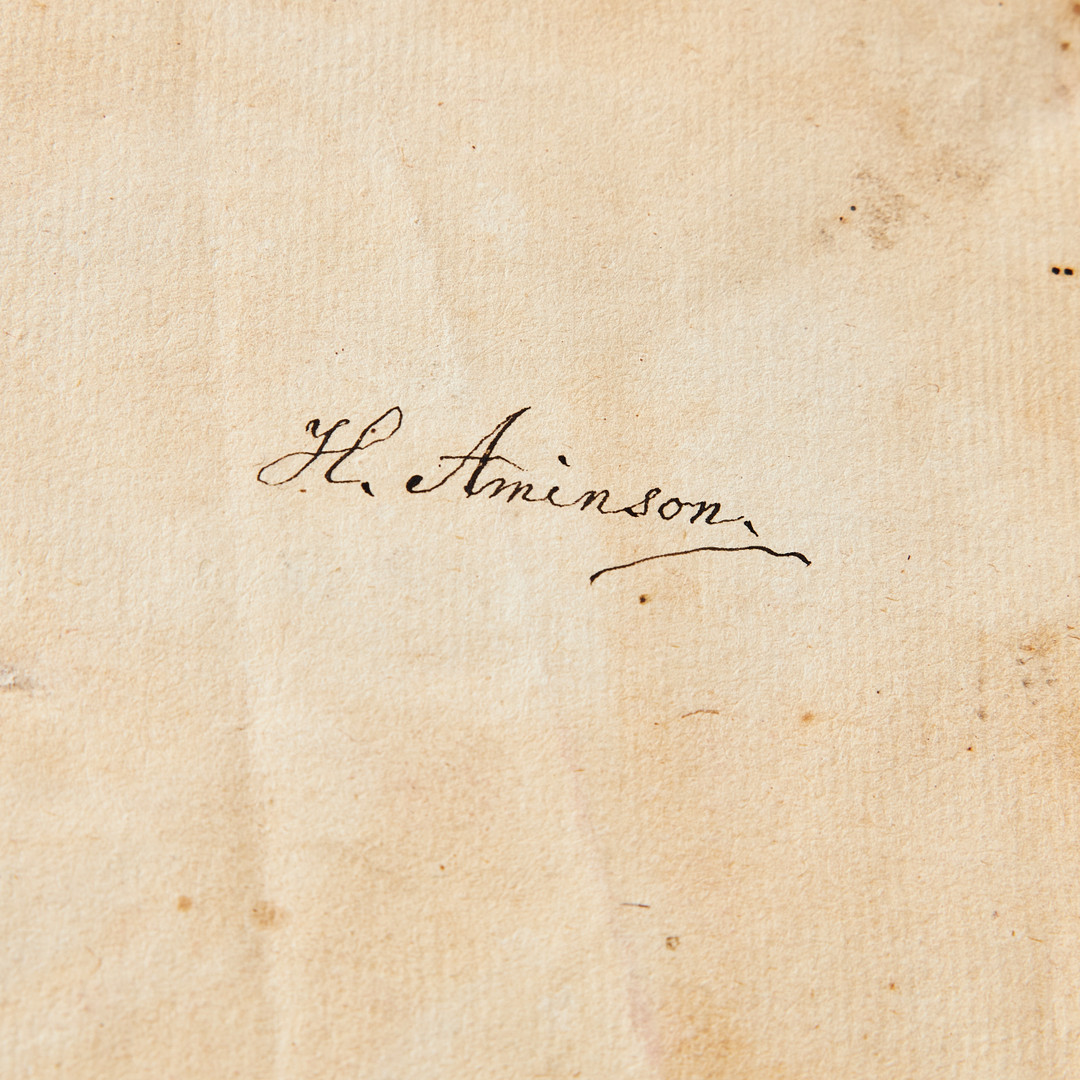 H. Aminson.